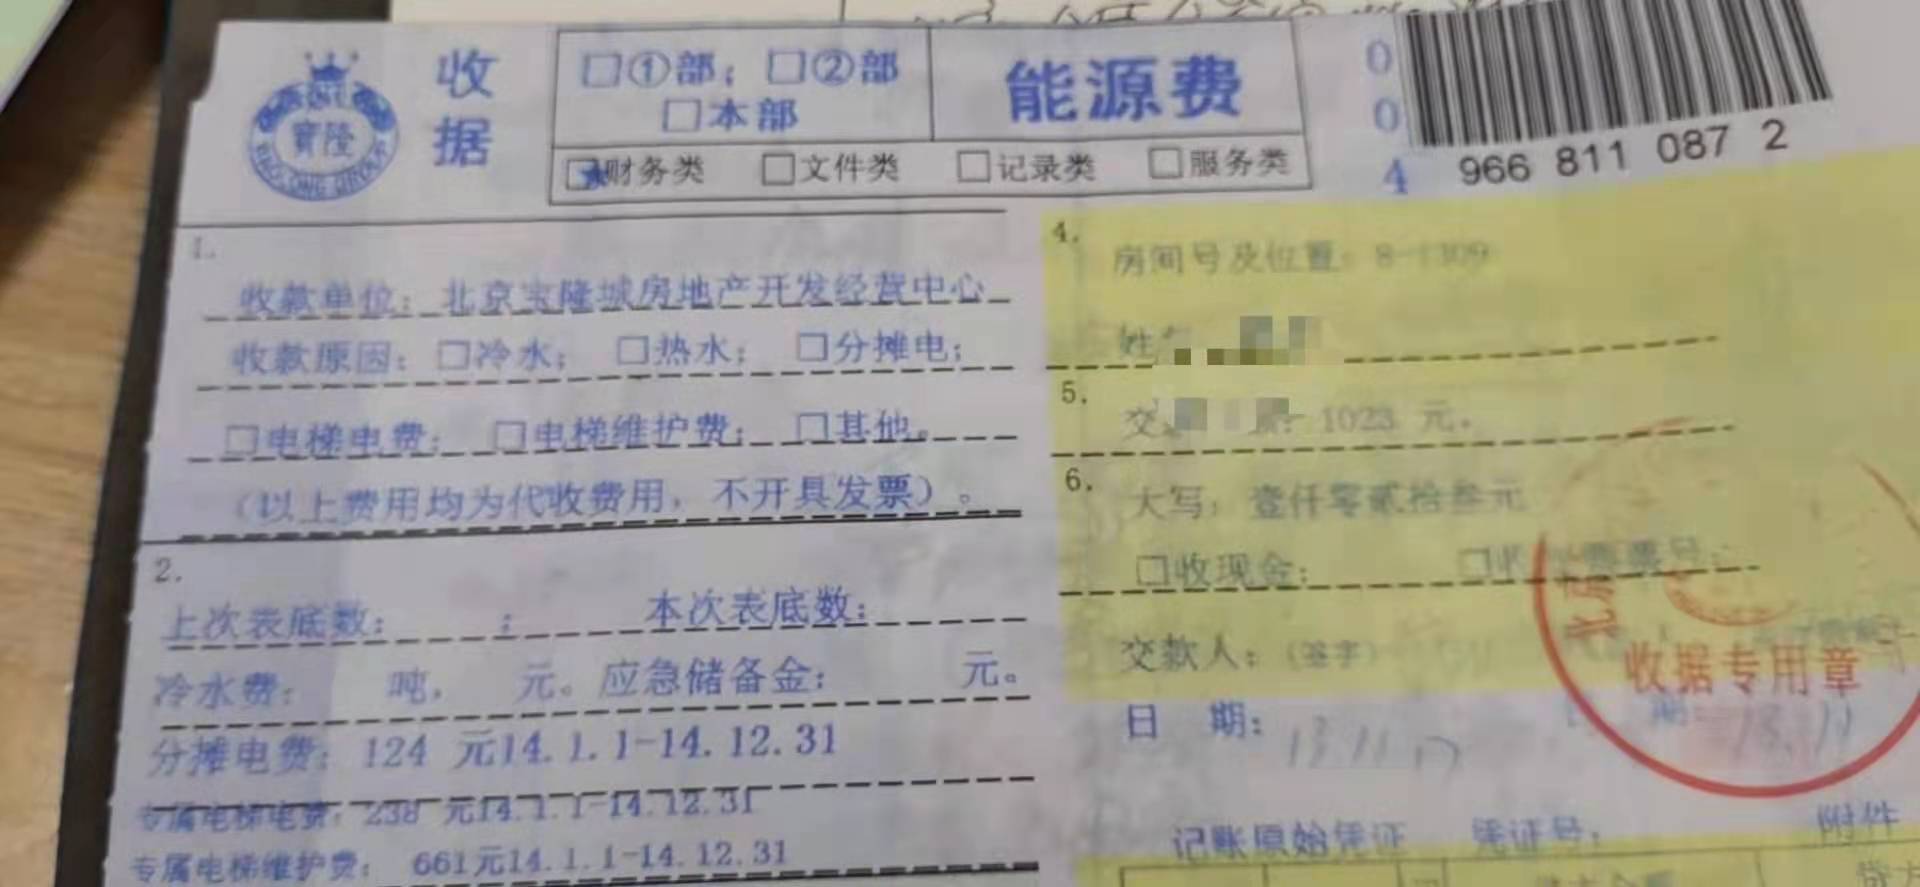 收据
□①部；□②部
□本部
能源费
0
0
4
966 811 087 2
□财务类 □文件类 □记录类 □服务类
寶隆
1.
收款单位：北京宝隆城房地产开发经营中心
收款原因：□冷水；□热水；□分摊电；
□电梯电费；□电梯维护费；□其他。
（以上费用均为代收费用，不开具发票）。
2.
上次表底数： ； 本次表底数：
冷水费： 吨， 元。应急储备金： 元。
分摊电费：124 元14.1.1-14.12.31
专属电梯电费：238 元14.1.1-14.12.31
专属电梯维护费： 661元14.1.1-14.12.31
4.
房间号及位置：8-1309
姓
5.
交 1023 元。
6.
大写：壹仟零贰拾叁元
□收现金： 票号：
交款人：（签字）
日 期：
收据专用章
记账原始凭证 凭证号： 附件